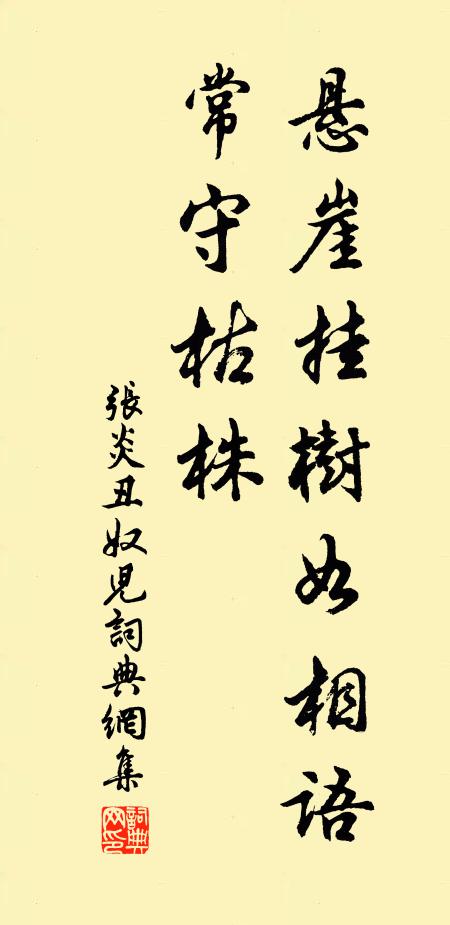 悬崖挂樹如相語
常守枯株
張炎丑奴兒詞典網集
詞典網印